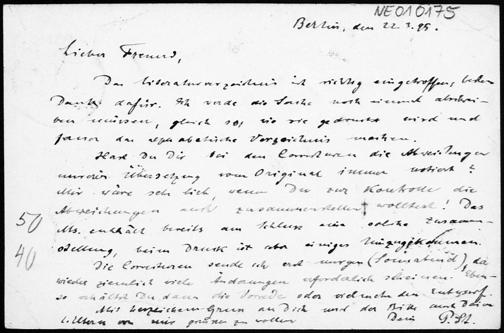 NE010175
Berlin, den 22.3.95.
Lieber Freund,
Das Literaturverzeichnis ist richtig eingetroffen, besten
Dank dafür. Ich werde die Sache noch einmal abschrei-
ben müssen, gleich so, wie sie gedruckt wird und
das alphabetische Verzeichnis machen.
Hast Du Dir bei den Correcturen die Abweichungen
unsrer Übersetzung vom Original immer notiert?
Mir wäre sehr lieb, wenn Du zur Kontrolle die
Abweichungen auch zusammenstellen wolltest! Das
Ms. enthält bereits am Schluss eine solche Zusammen-
stellung, beim Druck ist aber einiges hinzugekommen.
50
40
Die Correcturen sende ich erst morgen (Sonnabend), da
wieder ziemlich viele Änderungen erforderlich scheinen. Eben-
so erhältst Du dann die Vorrede oder vielmehr den Entwurf.
Mit herzlichem Gruss an Dich und der Bitte auch Deine
von mir grüssen zu wollen
Dein P. St.